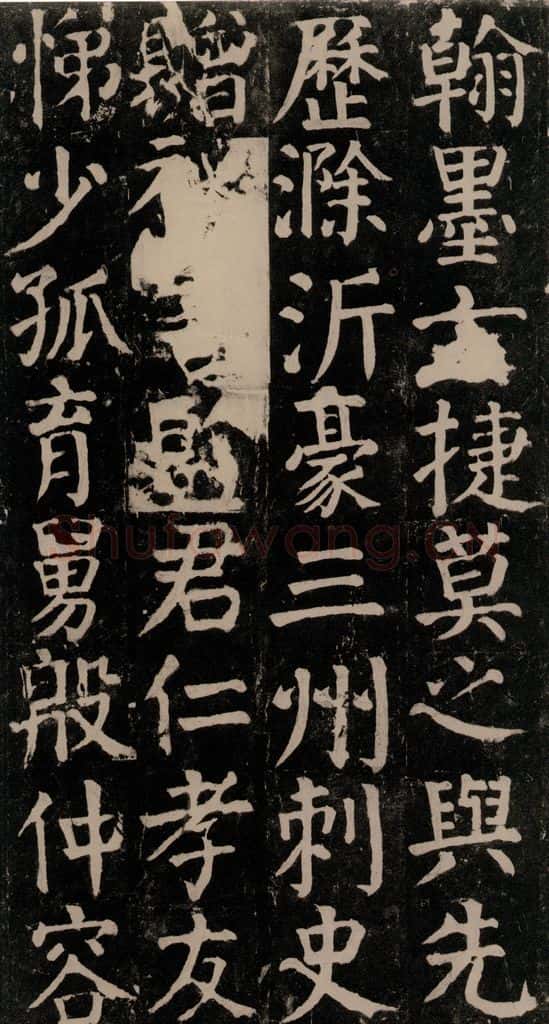 翰墨捷莫之與先
歷滁沂豪三州刺史
贈監君仁孝友
悌少孤育舅殷仲容
Shufawang.cn